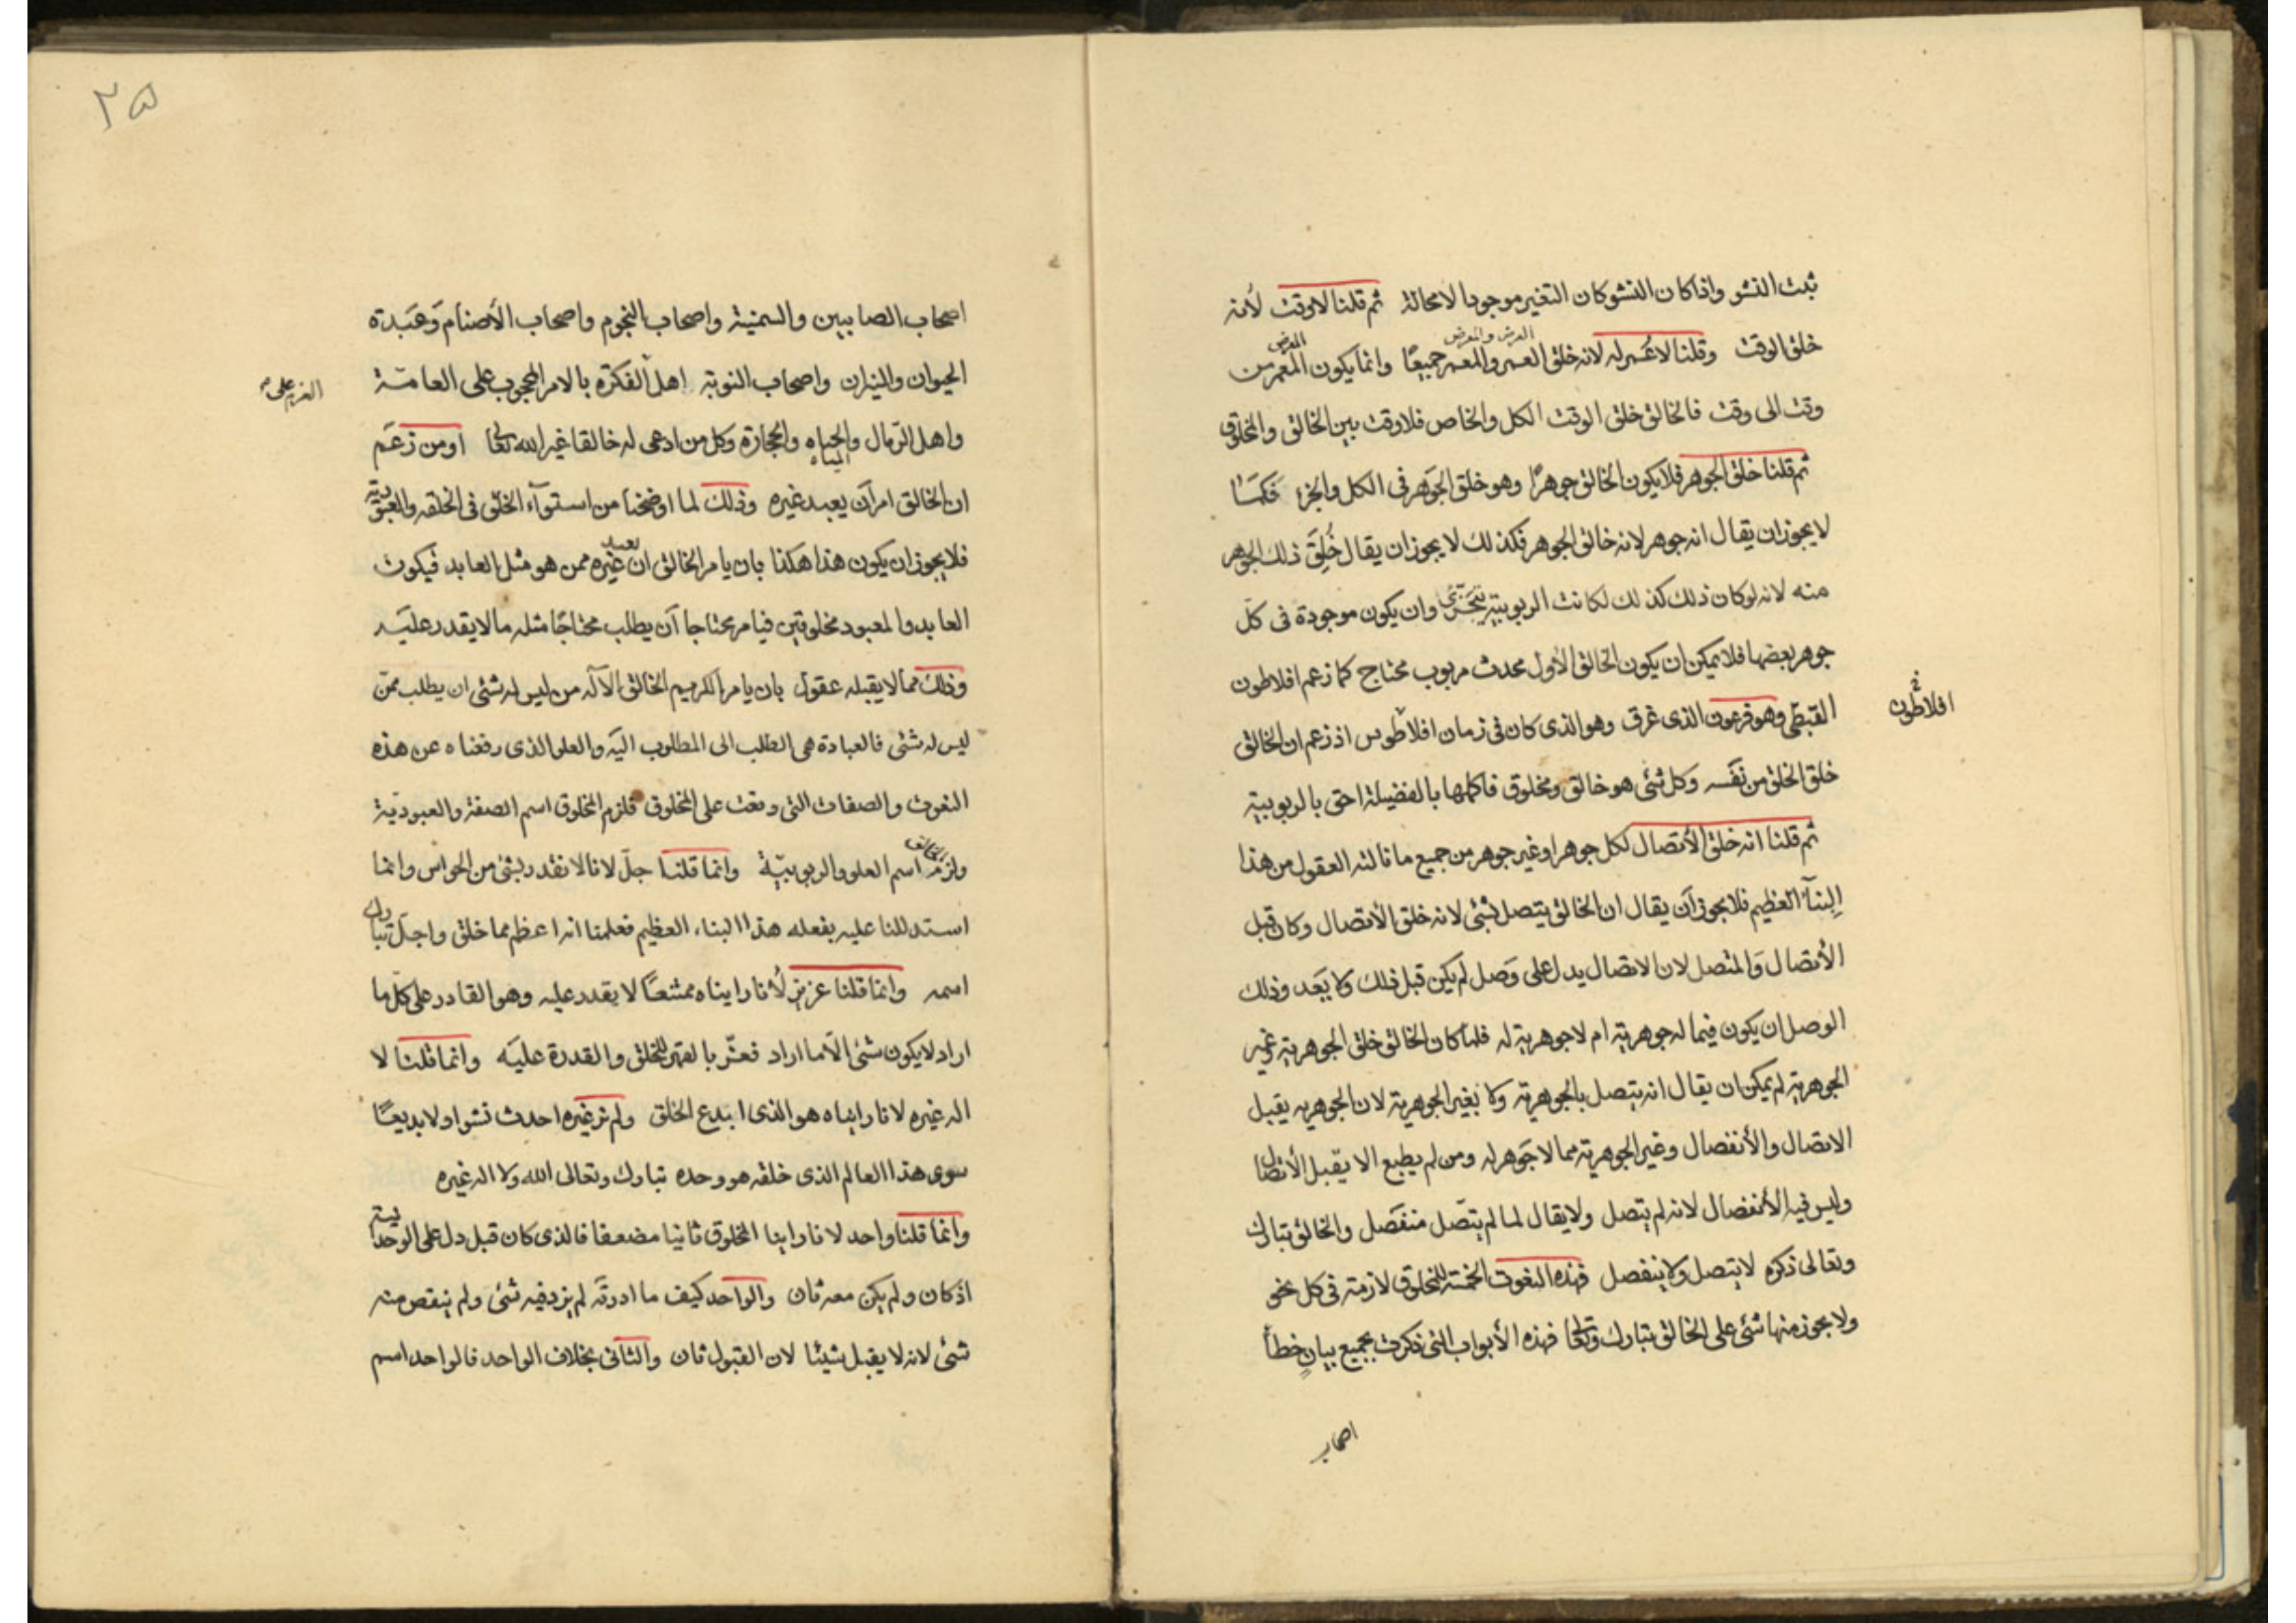 ثبت النشو واذا كان النشو كان التغير موجودا لامحالة ثم قلنا لا وقت لأنه
خلق الوقت وقلنا لا عمر له لانه خلق العمر والمعمر جميعًا وانما يكون المعمر من
العرض والمعرض
المعرض
وقت الى وقت فالخالق خلق الوقت الكل والخاص فلا وقت بين الخالق والمخلوق
ثم قلنا خلق الجوهر فلا يكون الخالق جوهرًا وهو خلق الجوهر فى الكل والجزء فكما
لا يجوز ان يقال انه جوهر لانه خالق الجوهر فكذلك لا يجوز ان يقال خُلِقَ ذلك الجوهر
منه لانه لو كان ذلك كذلك لكانت الربوبية تتجزئ وان يكون موجودة فى كلّ
جوهر بعضها فلا يمكن ان يكون الخالق الأول محدث مربوب محتاج كما زعم افلاطون
القبطى وهو فرعون الذى غرق وهو الذى كان فى زمان افلاطوس اذ زعم ان الخالق
افلاطون خ
خلق الخلق من نفسه وكل شئ هو خالق ومخلوق فاكملها بالفضيلة احق بالربوبية
ثم قلنا انه خلق الأتصال لكل جوهر او غير جوهر من جميع ما نالته العقول من هذا
البنآء العظيم فلا يجوز أن يقال ان الخالق يتصل بشئ لانه خلق الأتصال وكان قبل
الأتصال والمتصل لان الاتصال يدل على وصل لم يكن قبل ذلك ولا بَعد وذلك
الوصل ان يكون فيما له جوهرية ام لا جوهرية له فلما كان الخالق خلق الجوهرية وغير
الجوهرية لم يمكن ان يقال انه يتصل بالجوهرية ولا بغير الجوهرية لان الجوهريه يقبل
الاتصال والأنفصال وغير الجوهرية مما لا جوهر له ومن لم يطبع الا يقبل الأتصال
وليس فيه الأنفصال لانه لم يتصل ولا يقال لما لم يتّصل منفصل والخالق تبارك
وتعالى ذكره لا يتصل ولا ينفصل فهذه النعوت الخمسة للمخلوق لازمة فى كل نحو
ولا يجوز منها شئ على الخالق تبارك وتعالى فهذه الأبواب التى ذكرت بجميع بيان خطأ
اصحاب
٢۵
اصحاب الصابيين والسمنية واصحاب النجوم واصحاب الأصنام وَعَبَدة
الحيوان والنيران واصحاب النوبة اهل الفكرة بالامر المحجوب على العامّة
واهل الرّمال والحياه والحجارة وكل من ادعى له خالقا غير الله تعالى او من زعم
المياه
ان الخالق امر أن يعبد غيره وذلك لما اوضحنا من استوآء الخلق فى الخلقه والعبودية
فلا يجوز ان يكون هذا هكذا بان يامر الخالق ان يعبد غيره ممن هو مثل العابد فيكون
العابد والمعبود مخلوقين فيامر محتاجا أن يطلب محتاجًا مثله ما لا يقدر عليه
وذلك مما لا يقبله عقول بان يامر الكريم الخالق الآله من ليس له شئ ان يطلب ممن
ليس له شئ فالعبادة هى الطلب الى المطلوب اليه والعلو الذى رفعناه عن هذه
النعوت والصفات التى وقعت على المخلوق فلزم المخلوق اسم الصفة والعبوديّة
ولزم الخالق اسم العلو والربوبيّة وانما قلنا جلّ لانا لا نقدر بشئ من الحواس وانما
استدللنا عليه بفعله هذا البناء العظيم فعلمنا انه اعظم مما خلق واجلّ تبارك
اسمه وانما قلنا عزيز لأنا رايناه ممتنعًا لا يقدر عليه وهو القادر على كل ما
اراد لا يكون شئ الّا ما اراد فعزّ بالقهر للخلق والقدرة عليه وانما قلنا لا
اله غيره لانا رايناه هو الذى ابدع الخلق ولم نر غيره احدث نشوا ولا بديعًا
سوى هذا العالم الذى خلقه هو وحده تبارك وتعالى الله ولا اله غيره
وانما قلنا واحد لانا راينا المخلوق ثانيا مضعفا فالذى كان قبل دل على الوحدانية
اذ كان ولم يكن معه ثان والواحد كيف ما ادرته لم يزد فيه شئ ولم ينقص منه
شئ لانه لا يقبل شيئا لان القبول ثان والثانى بخلاف الواحد فالواحد اسم